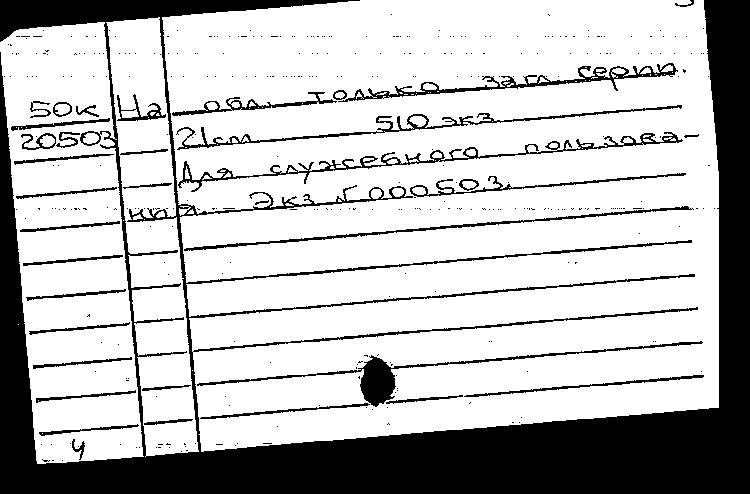 50к На обл. только загл. серии.
20503 21cm 510 экз
Для служебного пользова-
ния. – Экз N 000503.
4